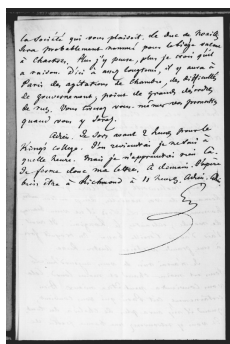 la société qui vous plaisait. Le duc de Noailles
sera probablement nommé pour le siège vacant
à Chartres. Plus j'y pense, plus je crois qu'il
a raison. D'ici à assez longtems, il y aura à
Paris des agitations de Chambre, des difficultés
de gouvernement, point de grands désordres
de rues. Vous serez vous-même
quand vous y serez.
Adieu. Je sors avant 2 heures pour le
King's college. J'en reviendrai je ne sais à
quelle heure. Mais je n'apprendrai rien là.
Je ferme donc ma lettre. A demain. J'espère
bien être à Richmond à 11 heures. Adieu. Ad.